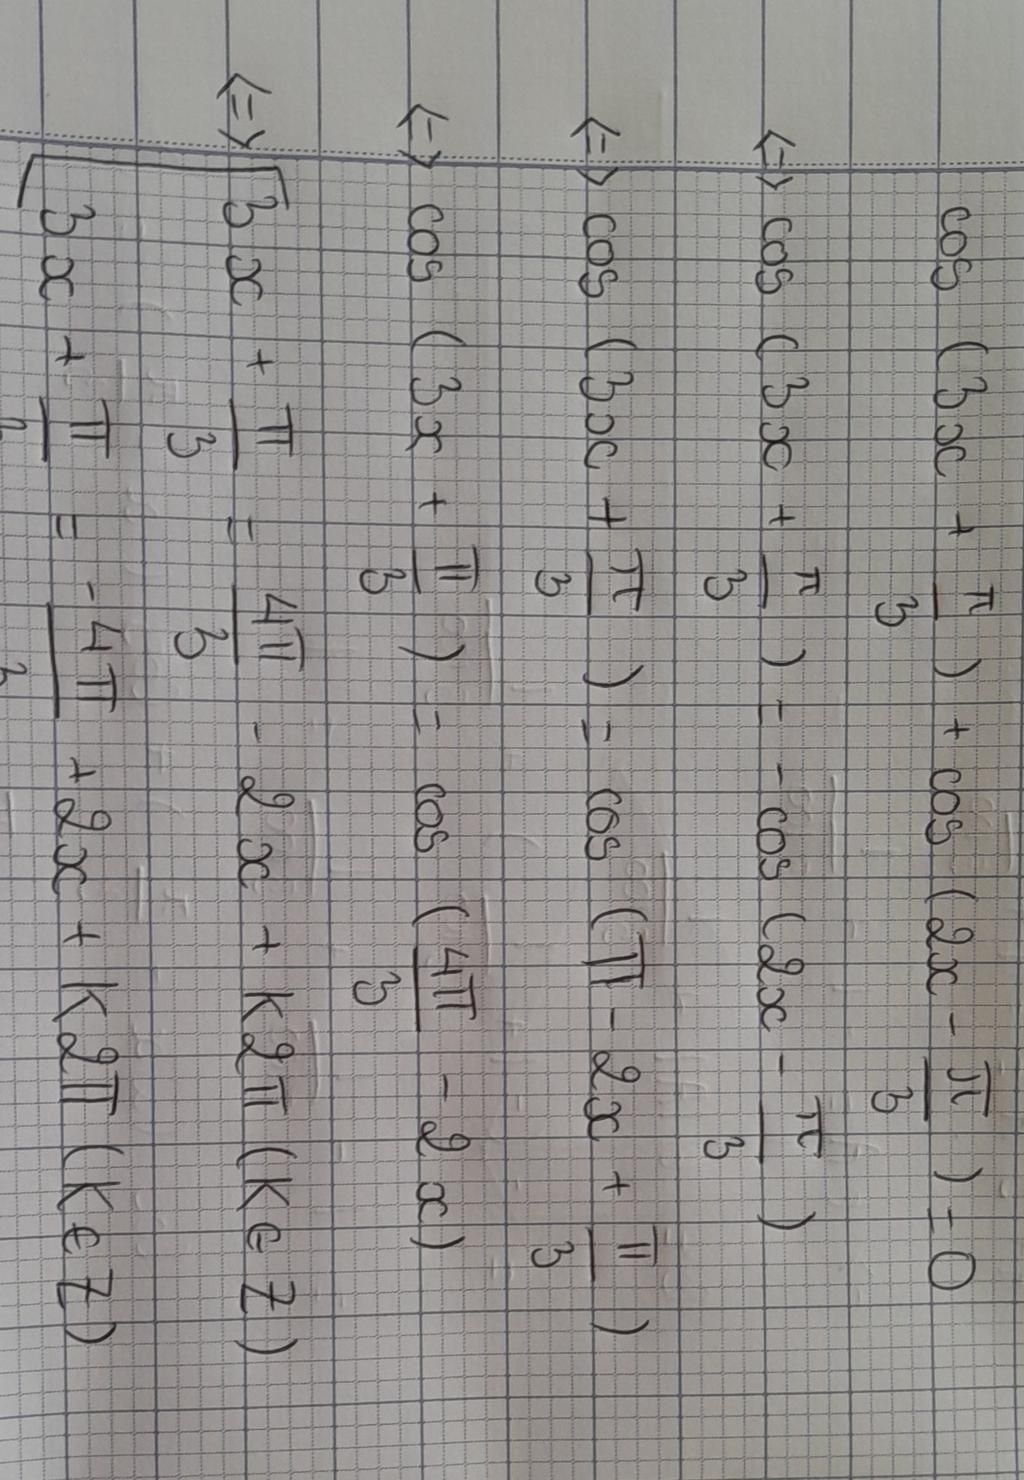 cos (3x + π/3) + cos (2x - π/3) = 0
<=> cos (3x + π/3) = - cos (2x - π/3)
<=> cos (3x + π/3) = cos (π - 2x + π/3)
<=> cos (3x + π/3) = cos (4π/3 - 2x)
<=> [3x + π/3 = 4π/3 - 2x + k2π (k ∈ Z)
[3x + π/3 = -4π/3 + 2x + k2π (k ∈ Z)